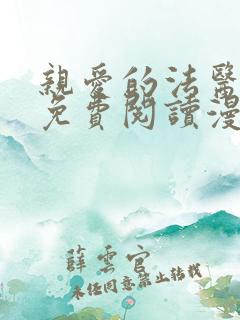 親愛的法醫
免費閱讀漫
薛雲官
未經同意禁止轉載